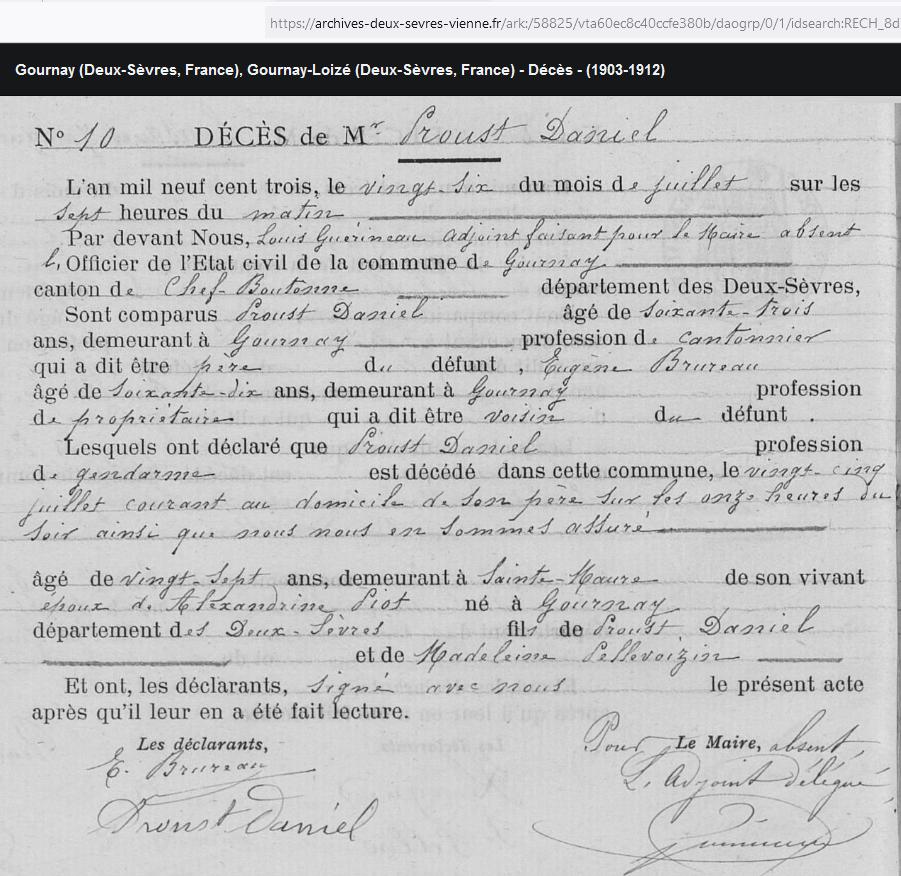 https://archives-deux-sevres-vienne.fr/ark:/58825/vta60ec8c40ccfe380b/daogrp/0/1/idsearch:RECH_8d
Gournay (Deux-Sèvres, France), Gournay-Loizé (Deux-Sèvres, France) - Décès - (1903-1912)
N° 10 DÉCÈS de Mr Proust Daniel
L'an mil neuf cent trois, le vingt six du mois de juillet sur les
sept heures du matin
Par devant Nous, Louis Guérineau adjoint faisant pour le Maire absent
l' Officier de l'Etat civil de la commune de Gournay
canton de Chef-Boutonne département des Deux-Sèvres,
Sont comparus Proust Daniel âgé de soixante-trois
ans, demeurant à Gournay profession de cantonnier
qui a dit être père du défunt, Eugène Brureau
âgé de soixante-dix ans, demeurant à Gournay profession
de propriétaire qui a dit être voisin du défunt.
Lesquels ont déclaré que Proust Daniel profession
de gendarme est décédé dans cette commune, le vingt-cinq
juillet courant au domicile de son père sur les onze heures du
soir ainsi que nous nous en sommes assuré
âgé de vingt-sept ans, demeurant à Sainte-Maure de son vivant
époux de Alexandrine Piot né à Gournay
département des Deux-Sèvres fils de Proust Daniel
et de Madeleine Pellevoizin
Et ont, les déclarants, signé avec nous le présent acte
après qu'il leur en a été fait lecture.
Les déclarants, Pour Le Maire, absent,
E. Brureau L'Adjoint délégué
Proust Daniel